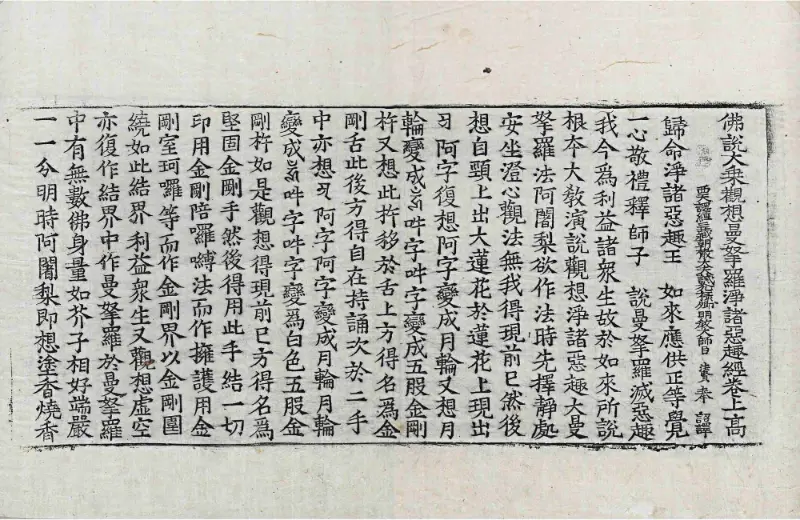 佛說大乘觀想曼拏羅淨諸惡趣經卷上 高
明教大師臣 法賢 奉 詔譯
歸命淨諸惡趣王 如來應供正等覺
一心敬禮釋師子 說曼拏羅滅惡趣
我今為利益諸衆生故於如來所說
根本大教演說觀想淨諸惡趣大曼
拏羅法阿闍梨欲作法時先擇靜處
安坐澄心觀法無我得現前已然後
想自頸上出大蓮花於蓮花上現出
阿字復想阿字變成月輪又想月
輪變成吽字吽字變成五股金剛
杵又想此杵移於舌上方得名為金
剛舌此後方得自在持誦次於二手
中亦想阿字阿字變成月輪月輪
變成吽字吽字變為白色五股金
剛杵如是觀想得現前已方得名為
堅固金剛手然後得用此手結一切
印用金剛陪囉嚩法而作擁護用金
剛室珂囉等而作金剛界以金剛圍
繞如此結界利益衆生又觀想虛空
亦復作結界中作曼拏羅於曼拏羅
中有無數佛身量如芥子相好端嚴
一一分明時阿闍梨即想塗香燒香